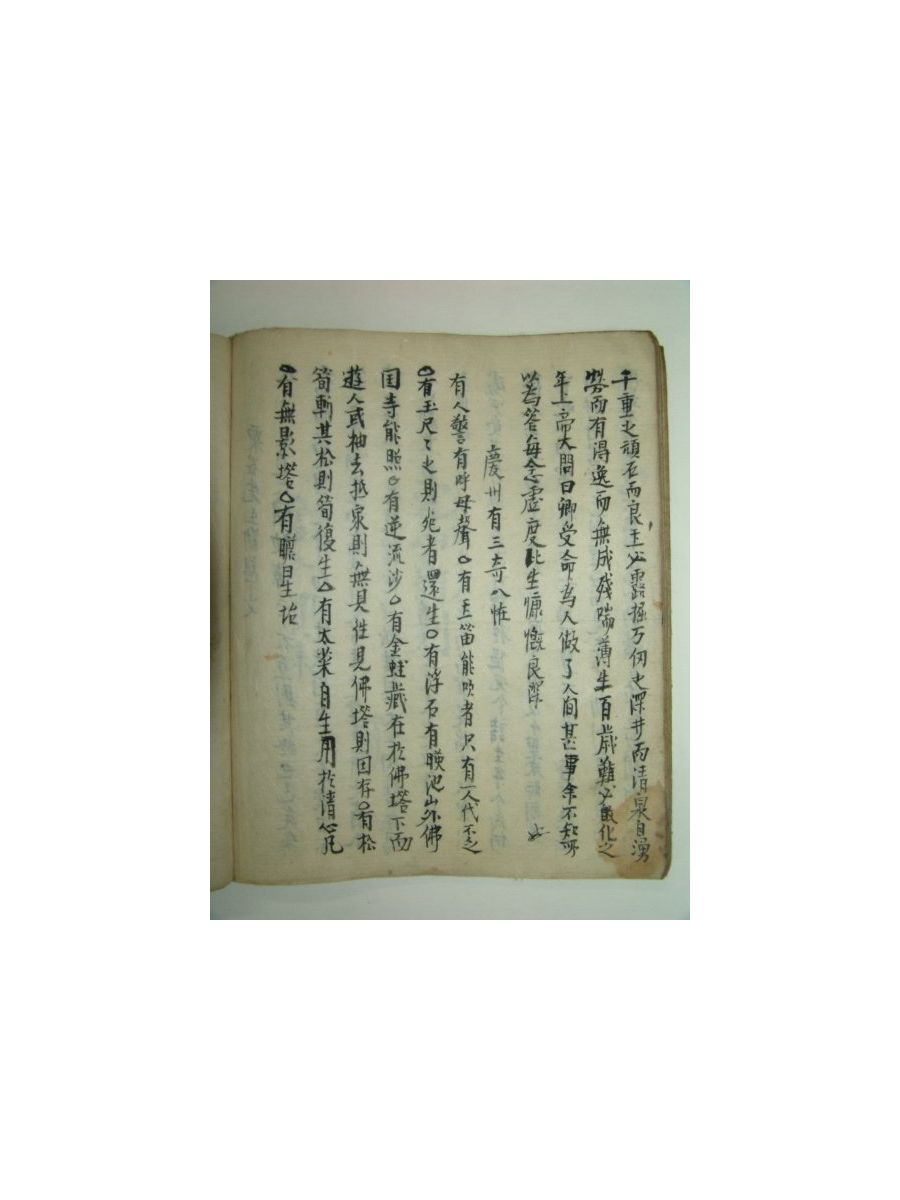 千重之頑石而良玉必露掘万仞之深井而清泉自湧
勞而有得逸而無成殘喘薄生百歲難必敀化之
年上帝大問曰卿受命爲人做了人间甚事余不知所
以爲答每念虛度此生慷慨良深
慶州有三奇八恠
有人警有呼母聲○有玉笛能吹者只有一人代不乏
○有玉尺〻之則死者還生○有浮石有暎池山外佛
囯寺能照○有逆流沙○有金蛙藏在於佛塔下而
遊人或袖去抵家則無見徃見佛塔則囙存○有松
筍斬其松則筍復生○有太菜自生用於清心元
○有無影塔○有瞻星坮